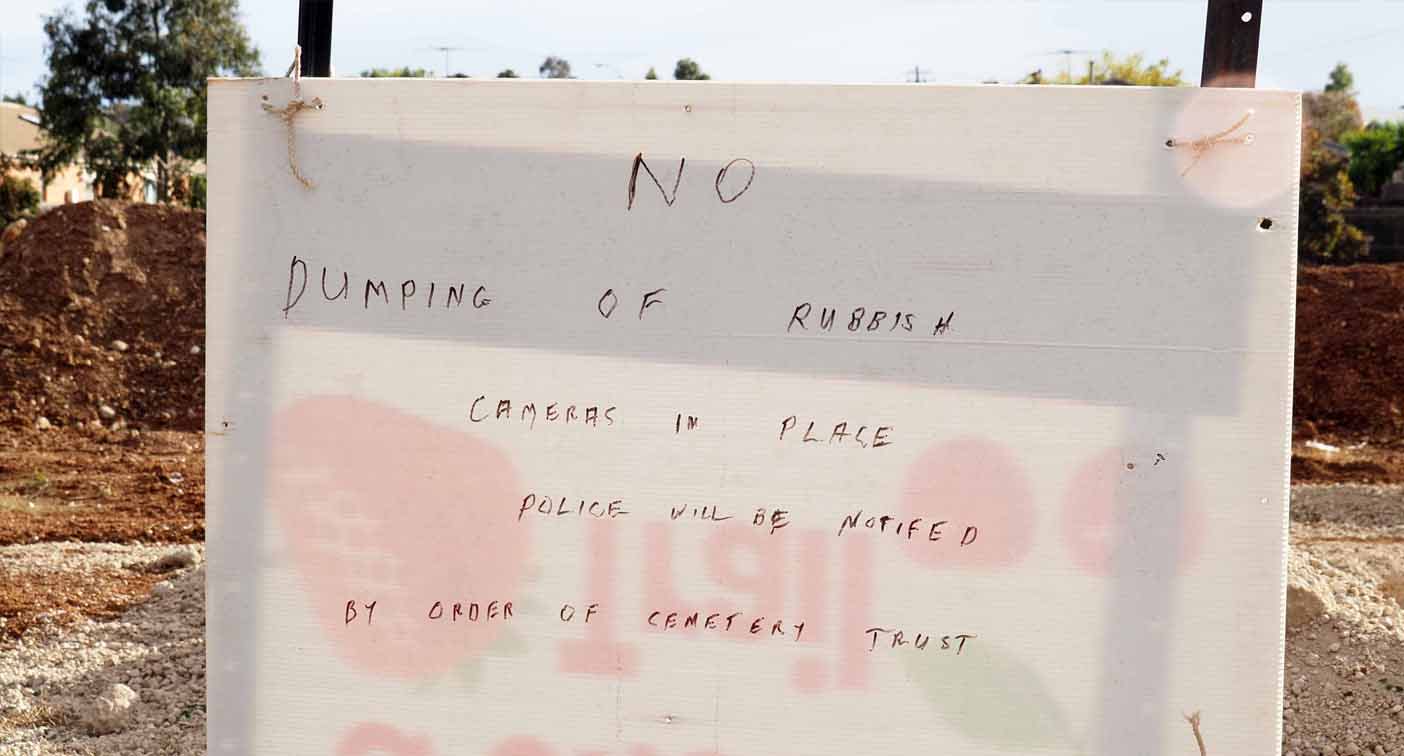 NO
DUMPING OF RUBBISH
CAMERAS IN PLACE
POLICE WILL BE NOTIFED
BY ORDER OF CEMETERY TRUST